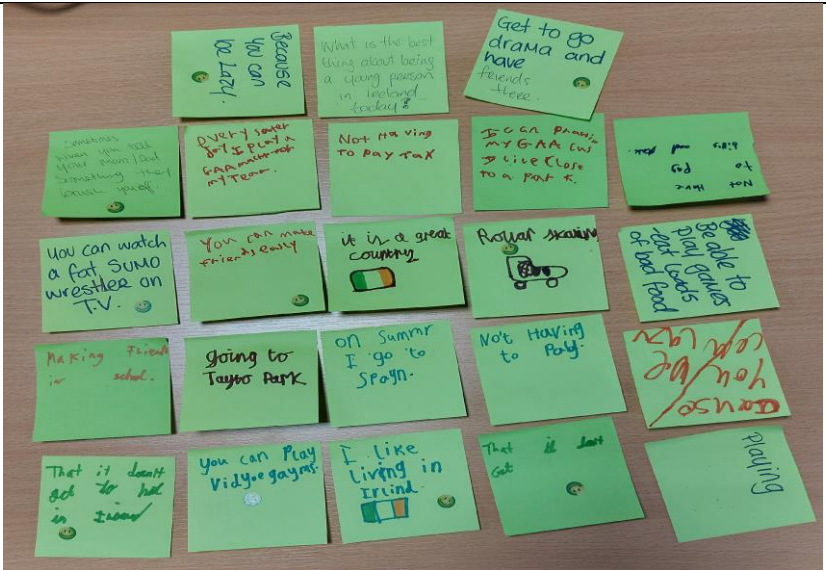 Because
you can
be Lazy.
What is the best
thing about being
a young person
in Ireland
today?
Get to go
drama and
have
friends
there.
Sometimes
when you tell
your mom/dad
something they
brush you off.
every
day I Play a
GAA match
my Team.
Not Having
To Pay Tax
I can
my GAA cus
I live close
to a park.
Not Have
to Pay
bills and
you can watch
a fat SUMO
wrestler on
T.V.
You can make
friends easly
it is a great
country
Rollar skaring
Be able to
Play games
eat loads
of bad food
Making Friends
in school.
going to
Tayto Park
on Summr
I go to
Spayn.
No't Having
to Pay.
you be
Lazy
That it doesn't
to hot
in
you can Play
Vidyoe gayms.
I like
Living in
Irlind.
That is
Get
Playing